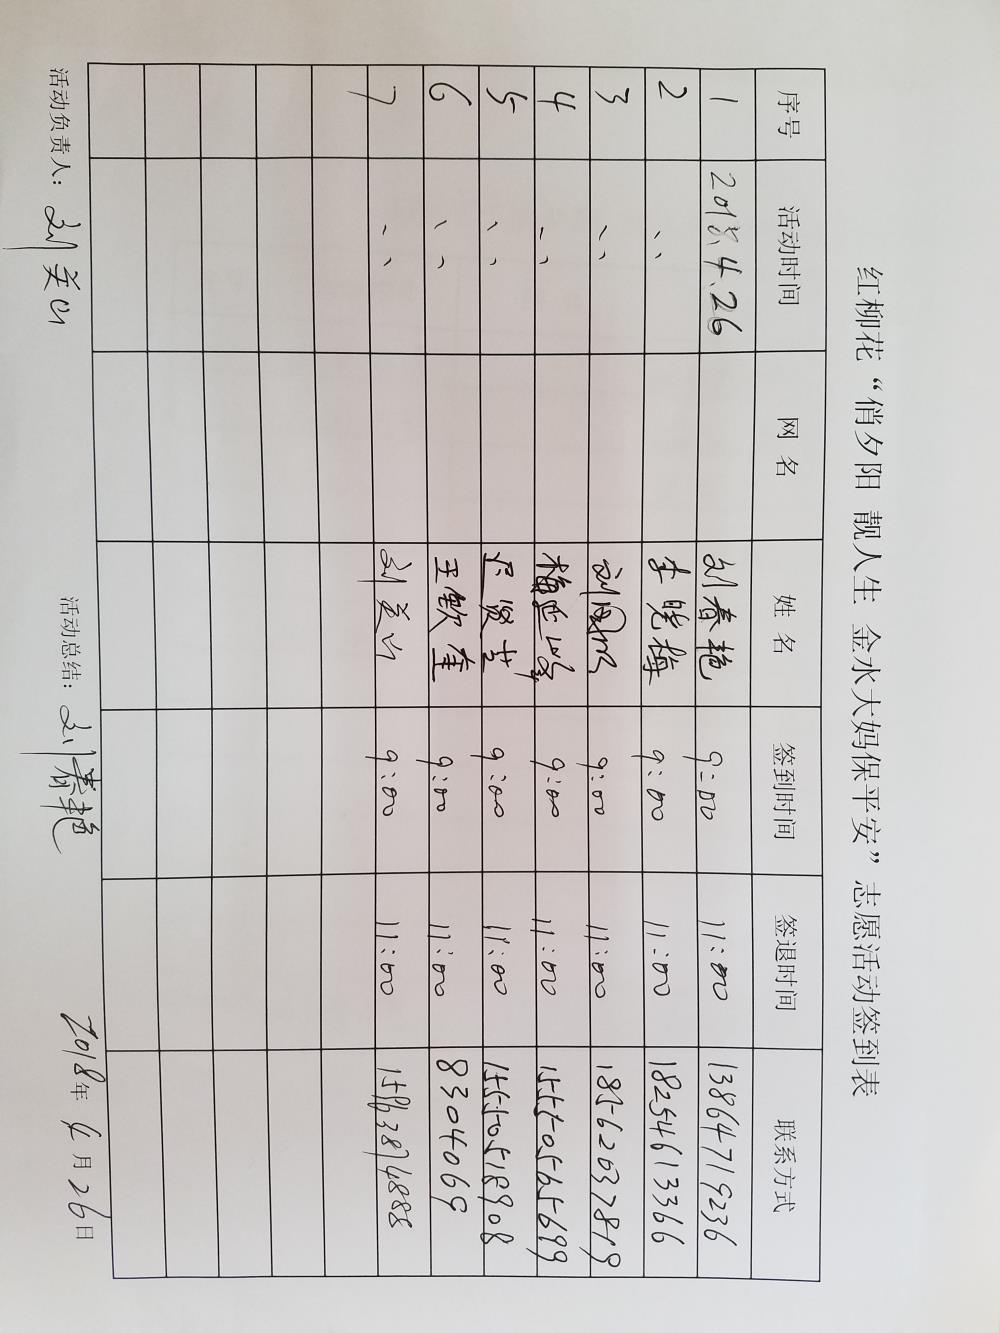 红柳花“俏夕阳 靓人生 金水大妈保平安”志愿活动签到表
序号 活动时间 网名 姓名 签到时间 签退时间 联系方式
1 2018.4.26 刘春艳 9:00 11:00 13864719236
2 、、 李晓梅 9:00 11:00 18254613366
3 、、 9:00 11:00 18562637819
4 、、 9:00 11:00 15550565699
5 、、 9:00 11:00 15550518908
6 、、 9:00 11:00 8304069
7 、、 9:00 11:00
活动负责人: 活动总结:刘春艳 2018年4月26日